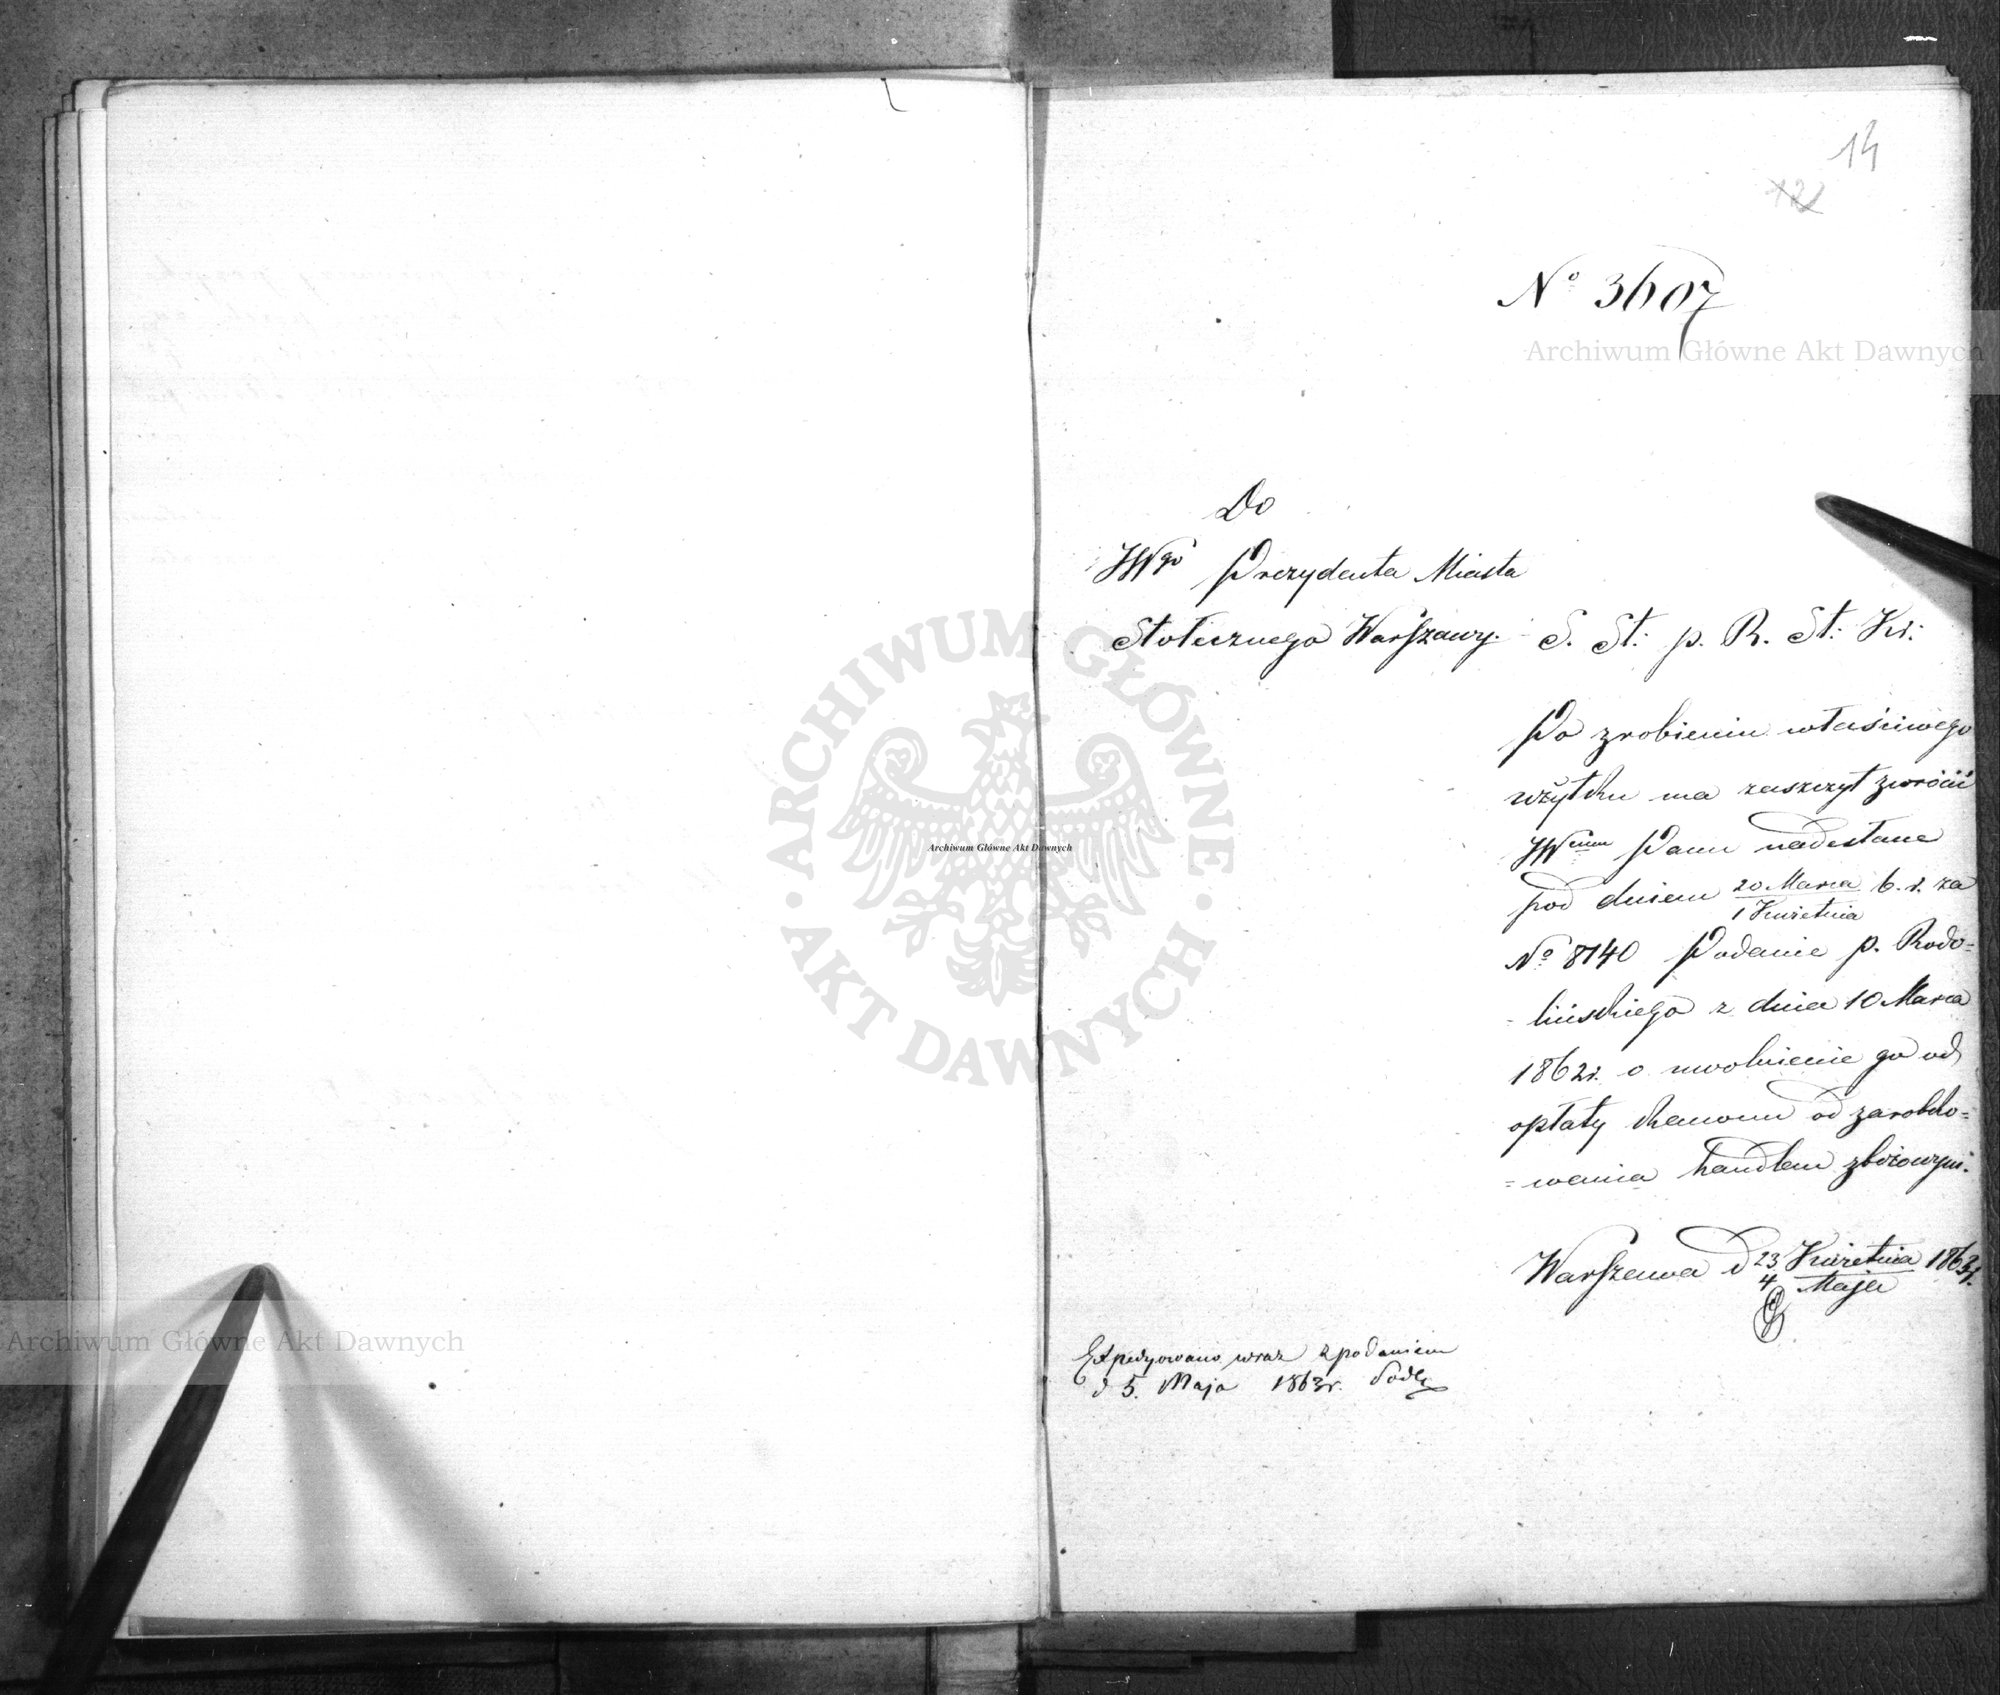 14
12
No 3607
Archiwum Główne Akt Dawnych
Do
JWgo Prezydenta Miasta
Stołecznego Warszawy.
S. St: p. R. St: Kr:
Po zrobieniu właściwego
użytku ma zaszczyt zwrócić
JWmu Panu nadesłane
pod dniem 20 Marca / 1 Kwietnia b. r. za
No 8140 Podanie p. Rodo=
=lińskiego z dnia 10 Marca
1862 r. o uwolnienie go od
opłaty kanonu od zarobko=
=wania handlem zbożowym.
Warszawa d 23 Kwietnia / 4 Maja 1863 r.
Expedyowano wraz z podaniem
d 5. Maja 1863 r.
ARCHIWUM GŁÓWNE AKT DAWNYCH
Archiwum Główne Akt Dawnych
Archiwum Główne Akt Dawnych